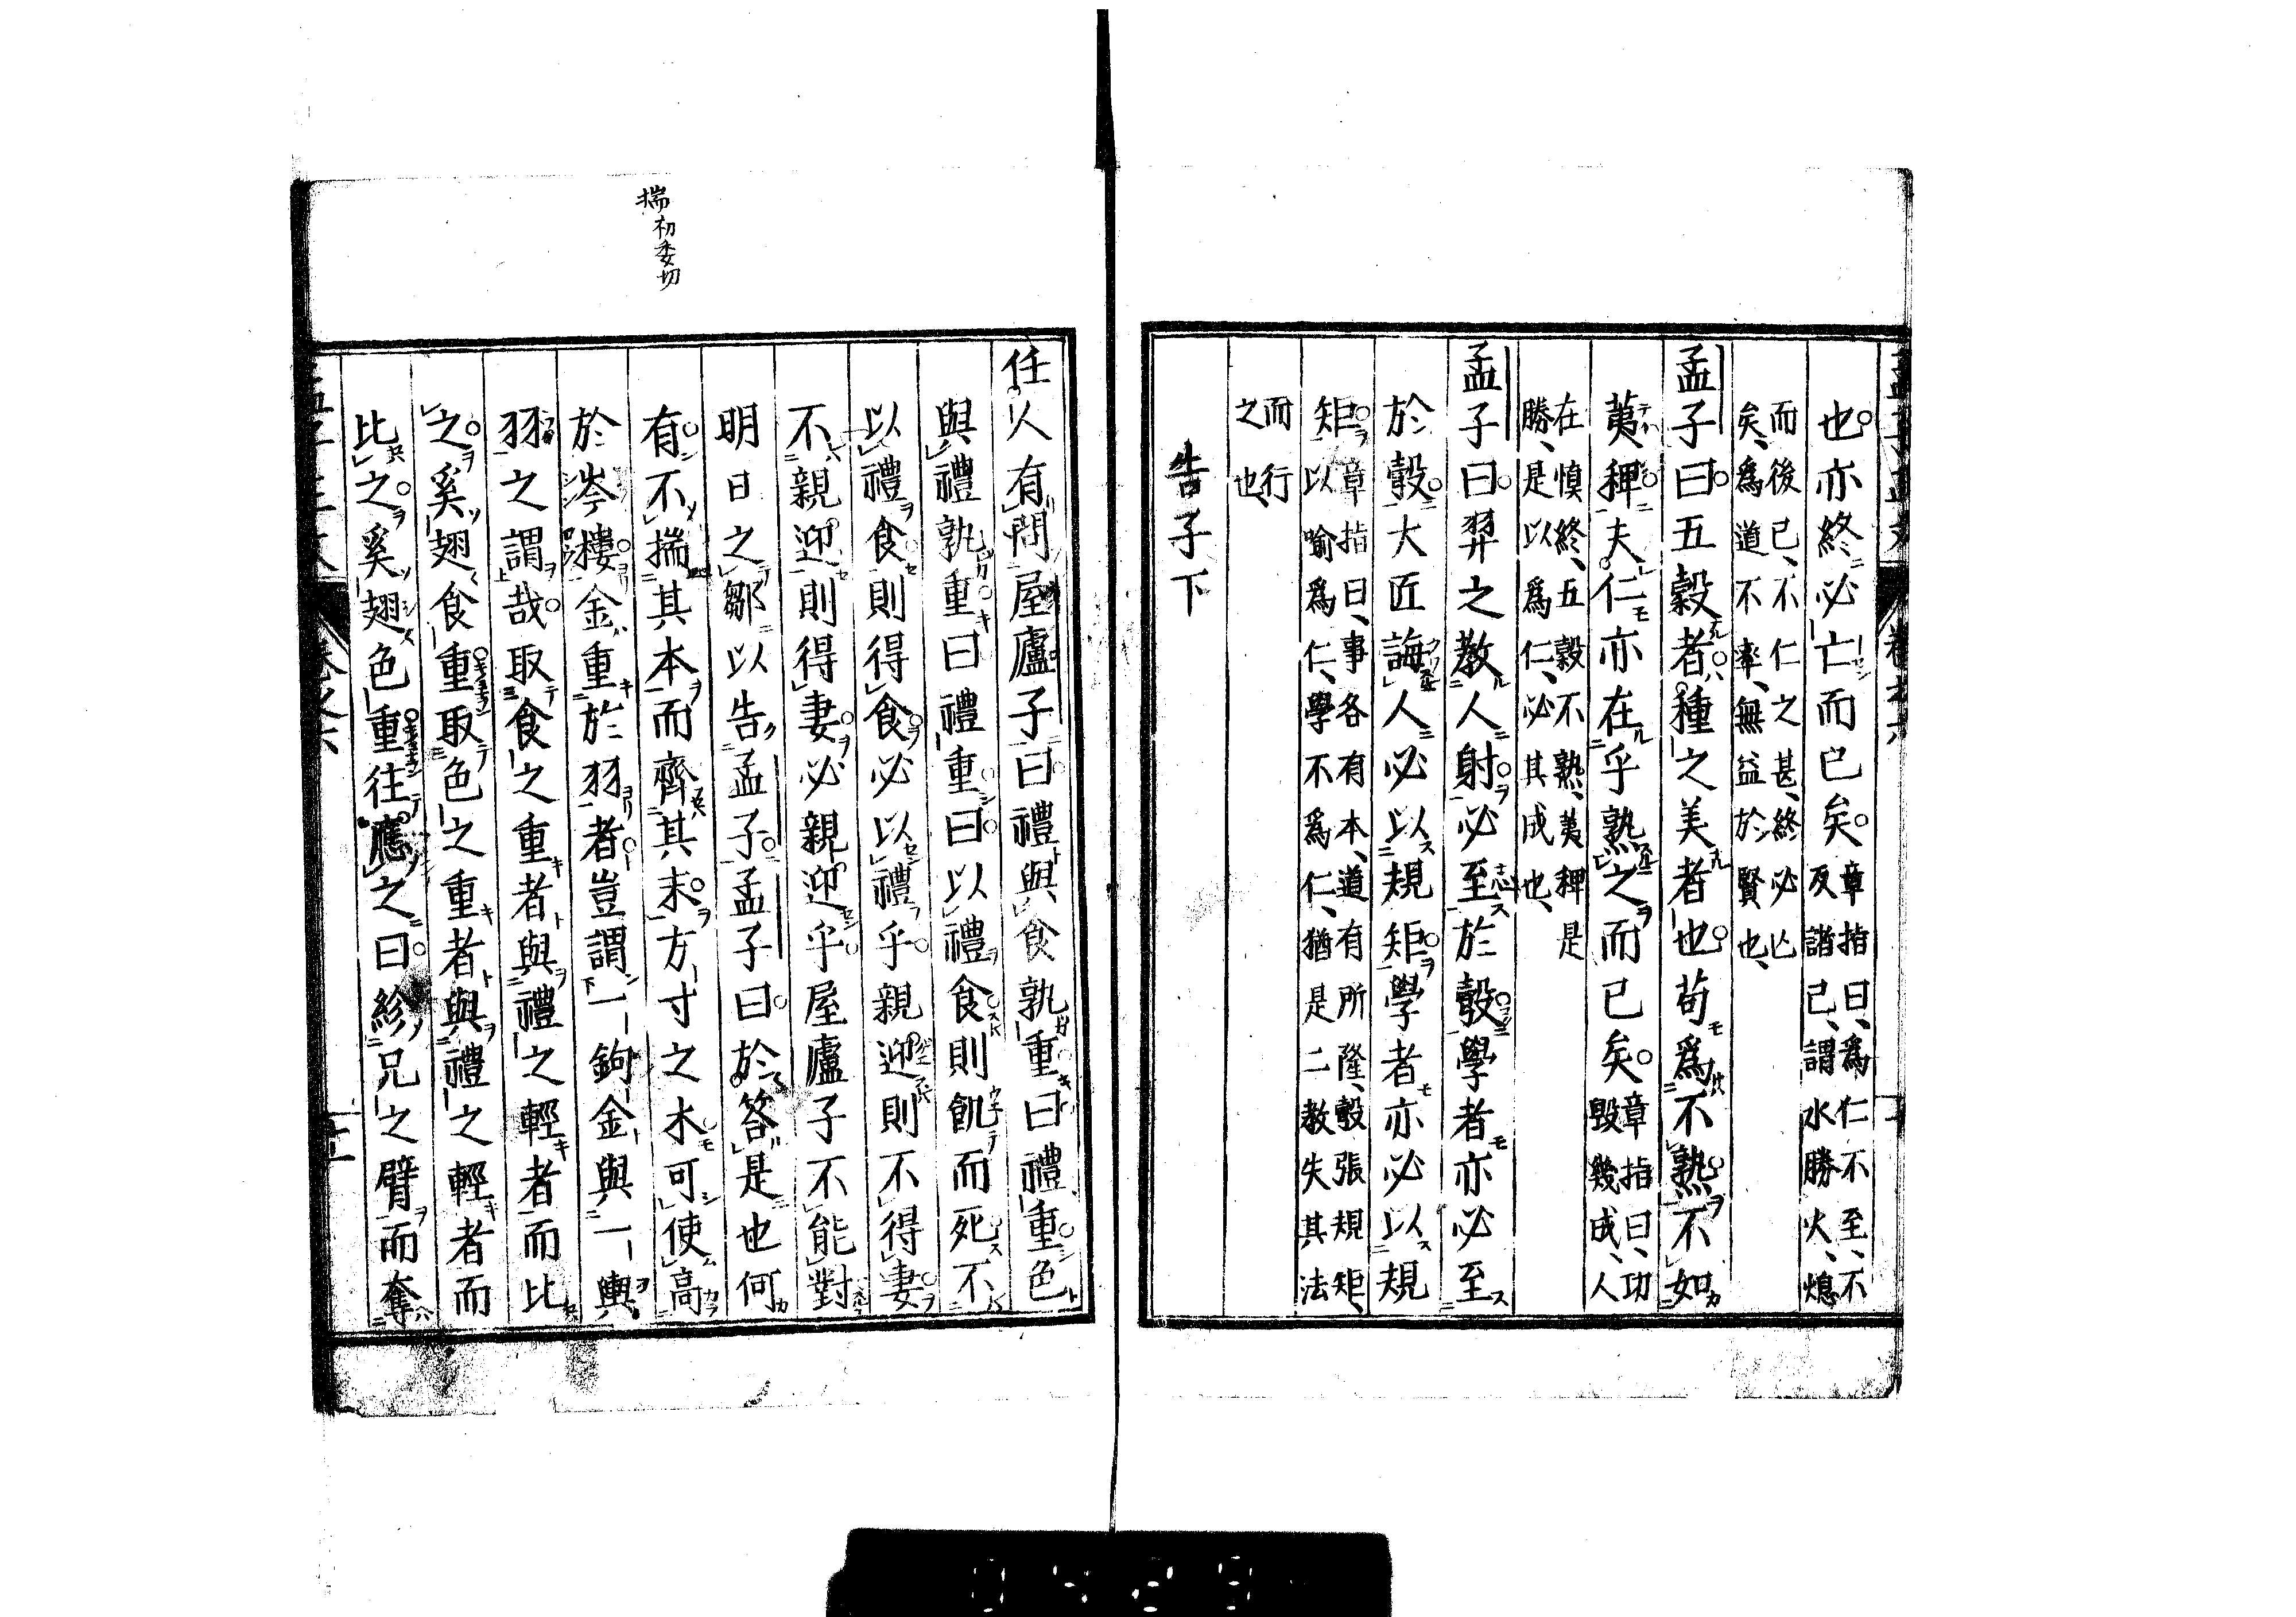 也亦終必亡而已矣章指曰、爲仁不至、不
反諸己、謂水勝火、熄
而後已、不仁之甚、終必亡
矣、爲道不率、無益於賢也、
孟子曰五穀者種之美者也苟爲不熟不如
荑稗夫仁亦在乎熟之而已矣章指曰、功
毀幾成、人
在慎終、五穀不熟、荑稗是
勝、是以爲仁、必其成也、
孟子曰羿之教人射必至於彀學者亦必至
於彀大匠誨人必以規矩學者亦必以規
矩章指曰、事各有本、道有所隆、彀張規矩、
以喻爲仁、學不爲仁、猶是二教失其法
而行
之也、
告子下
任人有問屋廬子曰禮與食孰重曰禮重色
與禮孰重曰禮重曰以禮食則飢而死不
以禮食則得食必以禮乎親迎則不得妻
不親迎則得妻必親迎乎屋廬子不能對
明日之鄒以告孟子孟子曰於答是也何
有不揣其本而齊其末方寸之木可使高
於岑樓金重於羽者豈謂一鉤金與一輿
羽之謂哉取食之重者與禮之輕者而比
之奚翅食重取色之重者與禮之輕者而
比之奚翅色重往應之曰紾兄之臂而奪
揣初委切